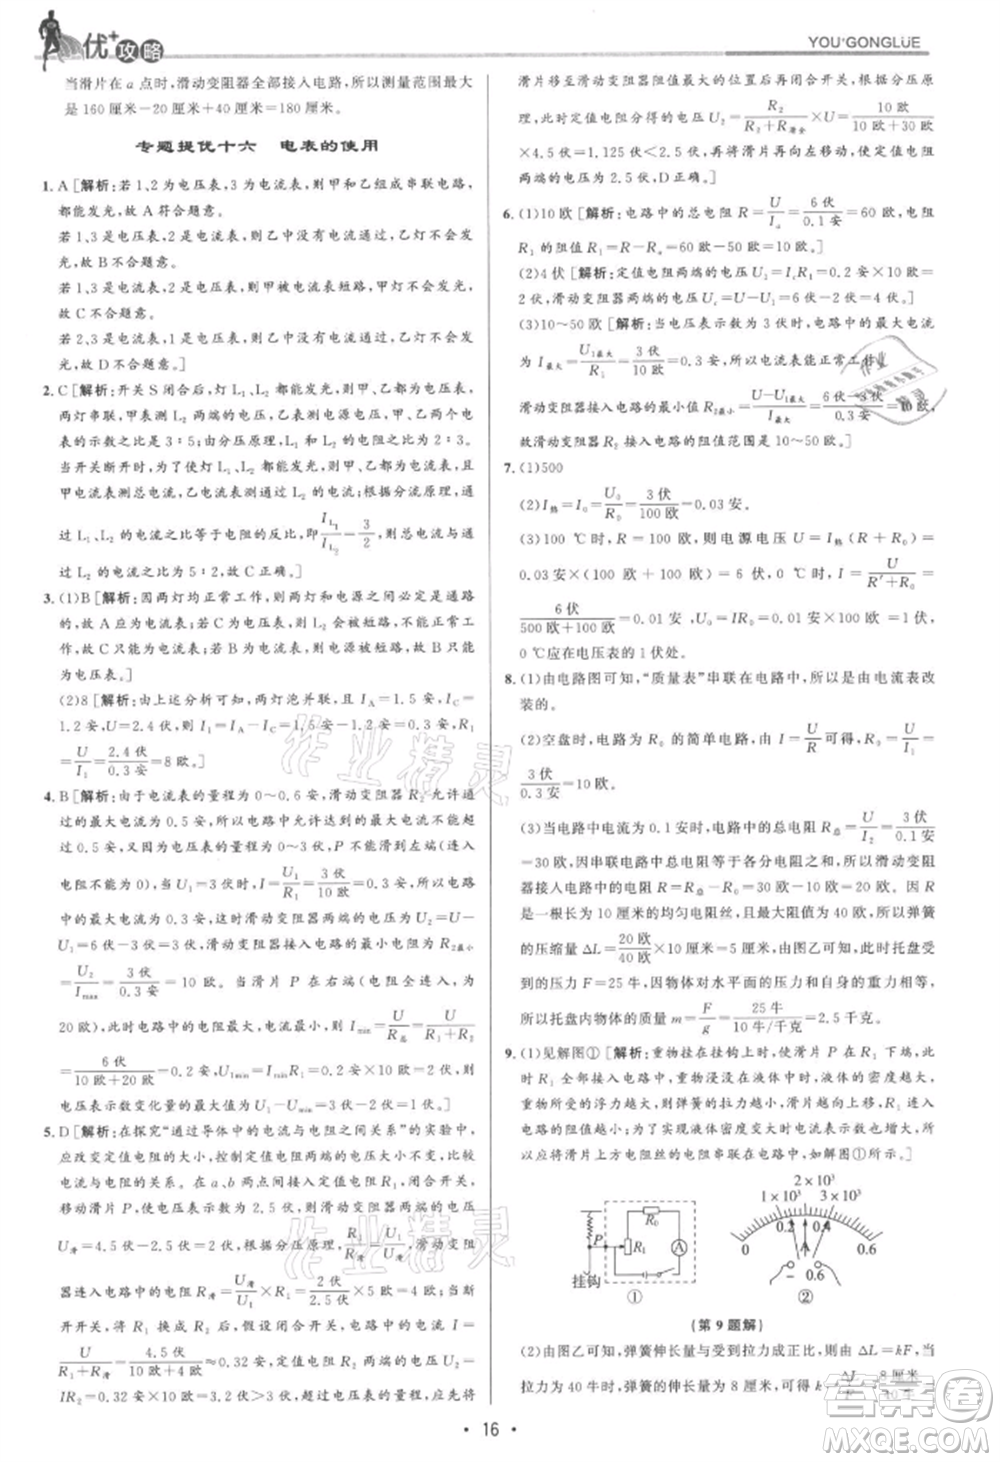 优+攻略
YOU+GONGLÜE
当滑片在 a 点时,滑动变阻器全部接入电路,所以测量范围最大
是 160 厘米-20 厘米+40 厘米=180 厘米。
专题提优十六 电表的使用
1. A [解析:若 1、2 为电压表,3 为电流表,则甲和乙组成串联电路,
都能发光,故 A 符合题意。
若 1、3 是电压表,2 是电流表,则乙中没有电流通过,乙灯不会发
光,故 B 不合题意。
若 1、3 是电流表,2 是电压表,则甲灯被电流表短路,甲灯不会发光,
故 C 不合题意。
若 2、3 是电流表,1 是电压表,则乙灯被电流表短路,乙灯不会发
光,故 D 不合题意。]
2. C [解析:开关 S 闭合后,灯 L₁、L₂ 都能发光,则甲、乙为电压表,
两灯串联,甲测灯 L₂ 两端的电压,乙测电源电压,甲、乙两个电
表的示数之比是 2∶3。由分压原理,两灯电阻之比为 2∶3。
当开关断开时,为了使灯 L₁、L₂ 都能发光,则甲、乙为电流表,且
甲电流表测总电流,乙电流表测通过灯 L₂ 的电流,由分流原理,通
过 L₁、L₂ 的电流之比等于电阻的反比,即 I_L₁/I_L₂=3/2,则总电流与通
过 L₂ 的电流之比为 5∶2。]
3. (1)B [解析:因两灯均正常工作,灯和电源之间必定是通路
的,故 A 应为电流表;若 B 为电流表,L₂ 就会被短路,不能工作,
故 C 只能是电流表。]
(2)8 [解析:由上述分析可知,两灯泡并联,则 I_A=1.5 安,I_C=
1.2 安,U=2.4 伏,则 I₁=I_A-I_C=1.5 安-1.2 安=0.3 安,R₁
=U/I₁=2.4 伏/0.3 安=8 欧。]
4. B [解析:由于电流表的量程为 0~0.6 安,滑动变阻器 R₂ 允许通
过的最大电流为 0.5 安,所以,串联电路中允许通过的最大电流
是 0.5 安,又因为电压表的量程为 0~3 伏,P 在最左端时,电流不
能为 0.5 安,此时电流表的示数最大为 I=U₁/R₁=3 伏/10 欧=0.3 安,
电路中的最大电流是 0.3 安,这时滑动变阻器两端的电压 U₂=U-
U₁=6 伏-3 伏=3 伏,滑动变阻器接入的阻值最小,为 R₂最小
=U₂/Imax=3 伏/0.3 安=10 欧。当滑片 P 在最右端(电阻全连入,为
20 欧)时,电路中的电阻最大,电流最小,I min=U/R总=U/(R₁+R₂)
=6 伏/(10 欧+20 欧)=0.2 安,U₁min=I min R₁=0.2 安×10 欧=2 伏,则
电压表示数变化量的最大值为 U₁-U min=3 伏-2 伏=1 伏。]
5. D [解析:在探究“通过导体中的电流与电阻的关系”的实验中,
应改变定值电阻的大小,控制定值电阻两端的电压不变。电源
电压为 4.5 伏。在 a、b 两点间接入定值电阻 R₁,闭合开关,移动
滑片 P,当电压表示数为 2.5 伏时,则滑动变阻器两端的电压
U滑=4.5 伏-2.5 伏=2 伏,根据分压原理,R₁/R滑=U₁/U滑,滑动变阻
器连入电路中的电阻 R滑=U滑/U₁×R₁=2 伏/2.5 伏×5 欧=4 欧;当
断开开关,将 R₁ 换成 R₂,再闭合开关,电路中的电流 I=
U/(R₁+R滑)≈0.32 安,根据欧姆定律,定值电阻 R₂ 两端的电压为 U₂=
IR₂=0.32 安×10 欧=3.2 伏>3 伏,超过电压表的量程,应先将
滑片移至滑动变阻器阻值最大的位置后再闭合开关;根据分压原
理,此时定值电阻分得的电压 U₂=R₂/(R₂+R滑全)×U=10 欧/(10 欧+30 欧)
×4.5 伏=1.125 伏<2.5 伏,故再将滑片向左移动,使定值电阻
两端的电压为 2.5 伏,D 正确。]
6. (1)10 欧 [解析:电路中的总电阻 R=U/I_a=6 伏/0.1 安=60 欧,电阻
R₁ 的阻值 R₁=R-R₂=60 欧-50 欧=10 欧。]
(2)4 伏 [解析:定值电阻两端的电压 U₁=I_cR₁=0.2 安×10 欧=
2 伏,滑动变阻器两端的电压 U_c=U-U₁=6 伏-2 伏=4 伏。]
(3)10~50 欧 [解析:电压表示数为 3 伏时,电路中的最大电流
为 I最大=U₁最大/R₁=3 伏/10 欧=0.3 安,所以电流表能正常工作,
滑动变阻器接入电路的最小值 R₂最小=(U-U₁最大)/I最大=(6 伏-3 伏)/0.3 安=10 欧,
故滑动变阻器 R₂ 接入电路的阻值范围是 10~50 欧。]
7. (1)500
(2)I热=I₀=U₀/R₀=3 伏/100 欧=0.03 安。
(3)100 ℃时,R=100 欧,则电源电压 U=I热(R+R₀)=
0.03 安×(100 欧+100 欧)=6 伏,0 ℃时,I=U/(R′+R₀)=
6 伏/(500 欧+100 欧)=0.01 安,U₀=IR₀=0.01 安×100 欧=1 伏,
0 ℃应在电压表的 1 伏处。
8. (1)由电路图可知,“质量表”串联在电路中,所以是由电流表改
装的。
(2)空盘时,电路为 R₀ 的简单电路,由 I=U/R 可得,R₀=U/I₁=
3 伏/0.3 安=10 欧。
(3)当电路中电流为 0.1 安时,电路中的总电阻 R总=U/I₂=3 伏/0.1 安
=30 欧,因串联电路中总电阻等于各分电阻之和,所以滑动变阻
器接入电路的电阻 R滑=R总-R₀=30 欧-10 欧=20 欧。因为 R
是一根长为 10 厘米的均匀电阻丝,且最大阻值为 40 欧,所以弹簧
的压缩量 ΔL=20 欧/40 欧×10 厘米=5 厘米;由图乙可知,此时托盘的
压力 F=25 牛,因物体对水平面的压力和自身的重力相等,
所以托盘内物体的质量 m=F/g=25 牛/(10 牛/千克)=2.5 千克。
9. (1)见解图① [解析:重物挂在挂钩上时,滑片 P 在 R₁ 下端,此
时 R₁ 全部接入电路,重物浸没在液体中时,液体密度越大,
重物所受的浮力越大,则弹簧的拉力越小,滑片 P 越靠上,R₁ 连入
电路的电阻越小,电流越大,电表示数变大,所以应
将滑片上方电阻丝串联接入电路中,如解图①所示。]
R₀
P
R₁
A
挂钩
①
0
1×10³
2×10³
3×10³
0.2
0.6
-
0.6
②
(第 9 题解)
(2)由图乙可知,弹簧伸长量与所受拉力成正比,即 ΔL=kF,当
拉力为 40 牛时,弹簧的伸长量为 8 厘米,则 k=ΔL/F=8 厘米/40 牛=
· 16 ·
作业精灵
作业精灵
答案圈
MXQE.COM